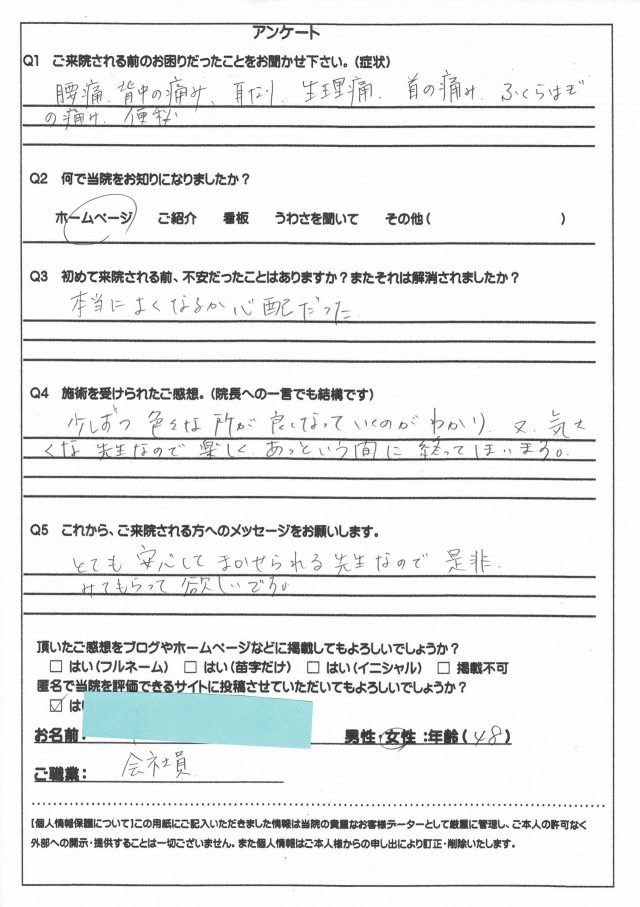 アンケート
Q1 ご来院される前のお困りだったことをお聞かせ下さい。(症状)
腰痛、背中の痛み、耳なり、生理痛、首の痛み、ふくらはぎ
の痛み、便秘
Q2 何で当院をお知りになりましたか？
ホームページ ご紹介 看板 うわさを聞いて その他( )
Q3 初めて来院される前、不安だったことはありますか？またそれは解消されましたか？
本当によくなるか心配だった
Q4 施術を受けられたご感想。(院長への一言でも結構です)
少しずつ色々な所が良くなっていくのがわかり、又、気さ
くな先生なので楽しく、あっという間に終ってしまいます。
Q5 これから、ご来院される方へのメッセージをお願いします。
とても安心してまかせられる先生なので是非、
みてもらって欲しいです。
頂いたご感想をブログやホームページなどに掲載してもよろしいでしょうか？
□ はい(フルネーム) □ はい(苗字だけ) □ はい(イニシャル) □ 掲載不可
匿名で当院を評価できるサイトに投稿させていただいてもよろしいでしょうか？
☑ は
お名前: 男性・女性:年齢(48)
ご職業: 会社員
【個人情報保護について】この用紙にご記入いただきました情報は当院の貴重なお客様データーとして厳重に管理し、ご本人の許可なく
外部への開示・提供することは一切ございません。また個人情報はご本人様からの申し出により訂正・削除いたします。